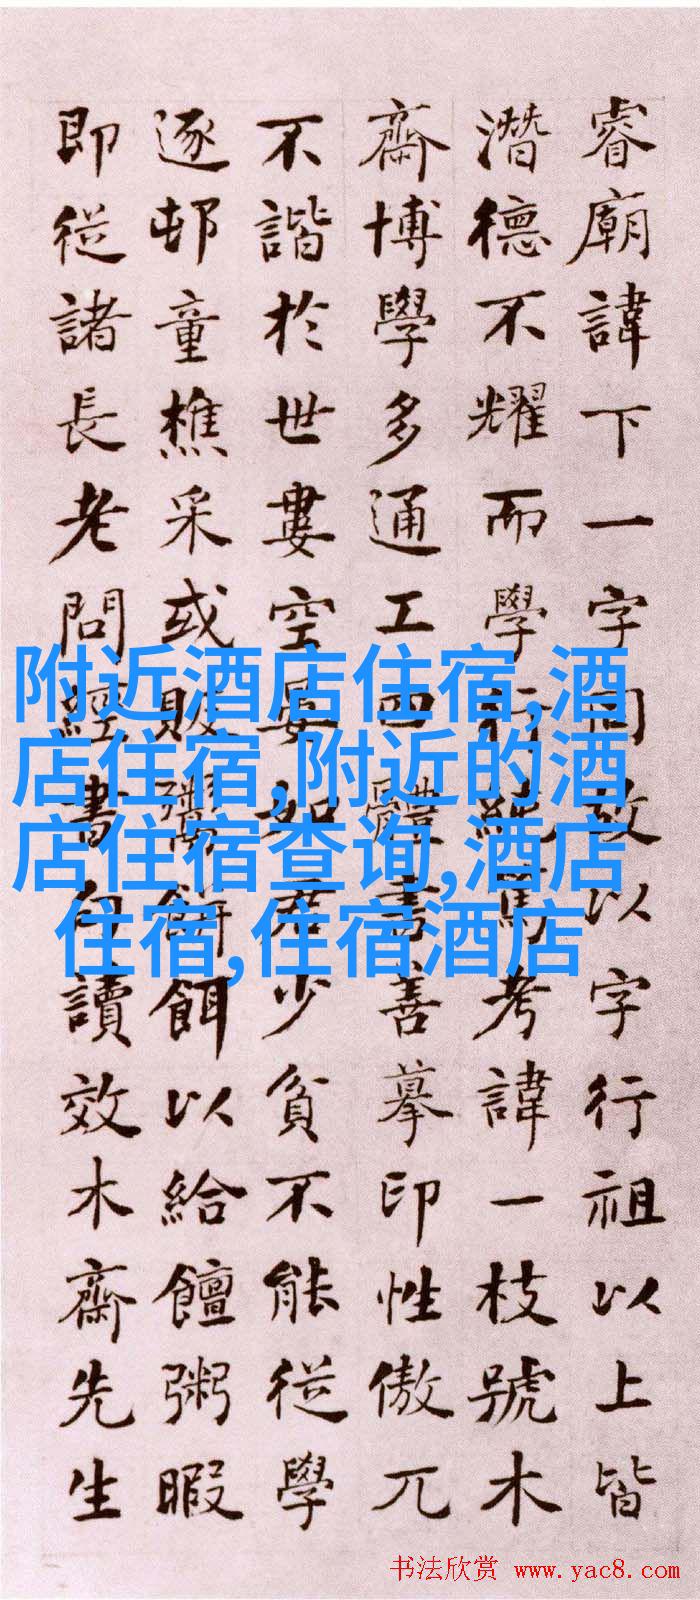 睿廟諱下一字同故以字行祖以上皆
潛德不耀而學行純篤考諱一枝號木
齋博學多通工四體書善摹印性傲兀
不諧於世婁空晏如君少貧不能從學
逐邨童樵采或販鬻餅餌以給饘粥暇
即從諸長老問經書句讀效木齋先生
附近酒店住宿,酒
店住宿,附近的酒
店住宿查询,酒店
住宿,住宿酒店
书法欣赏 www.yac8.com